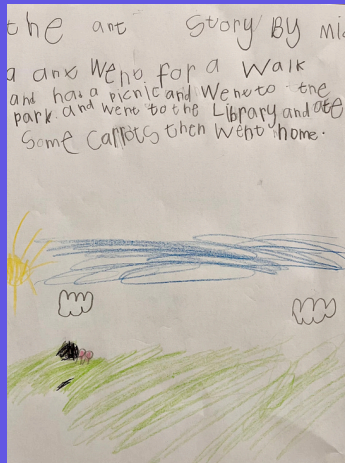 the ant Story By mi
a ant Went for a Walk
and had a picnic and Went to the
park. and went to the Library and ate
Some Carrots then went home.